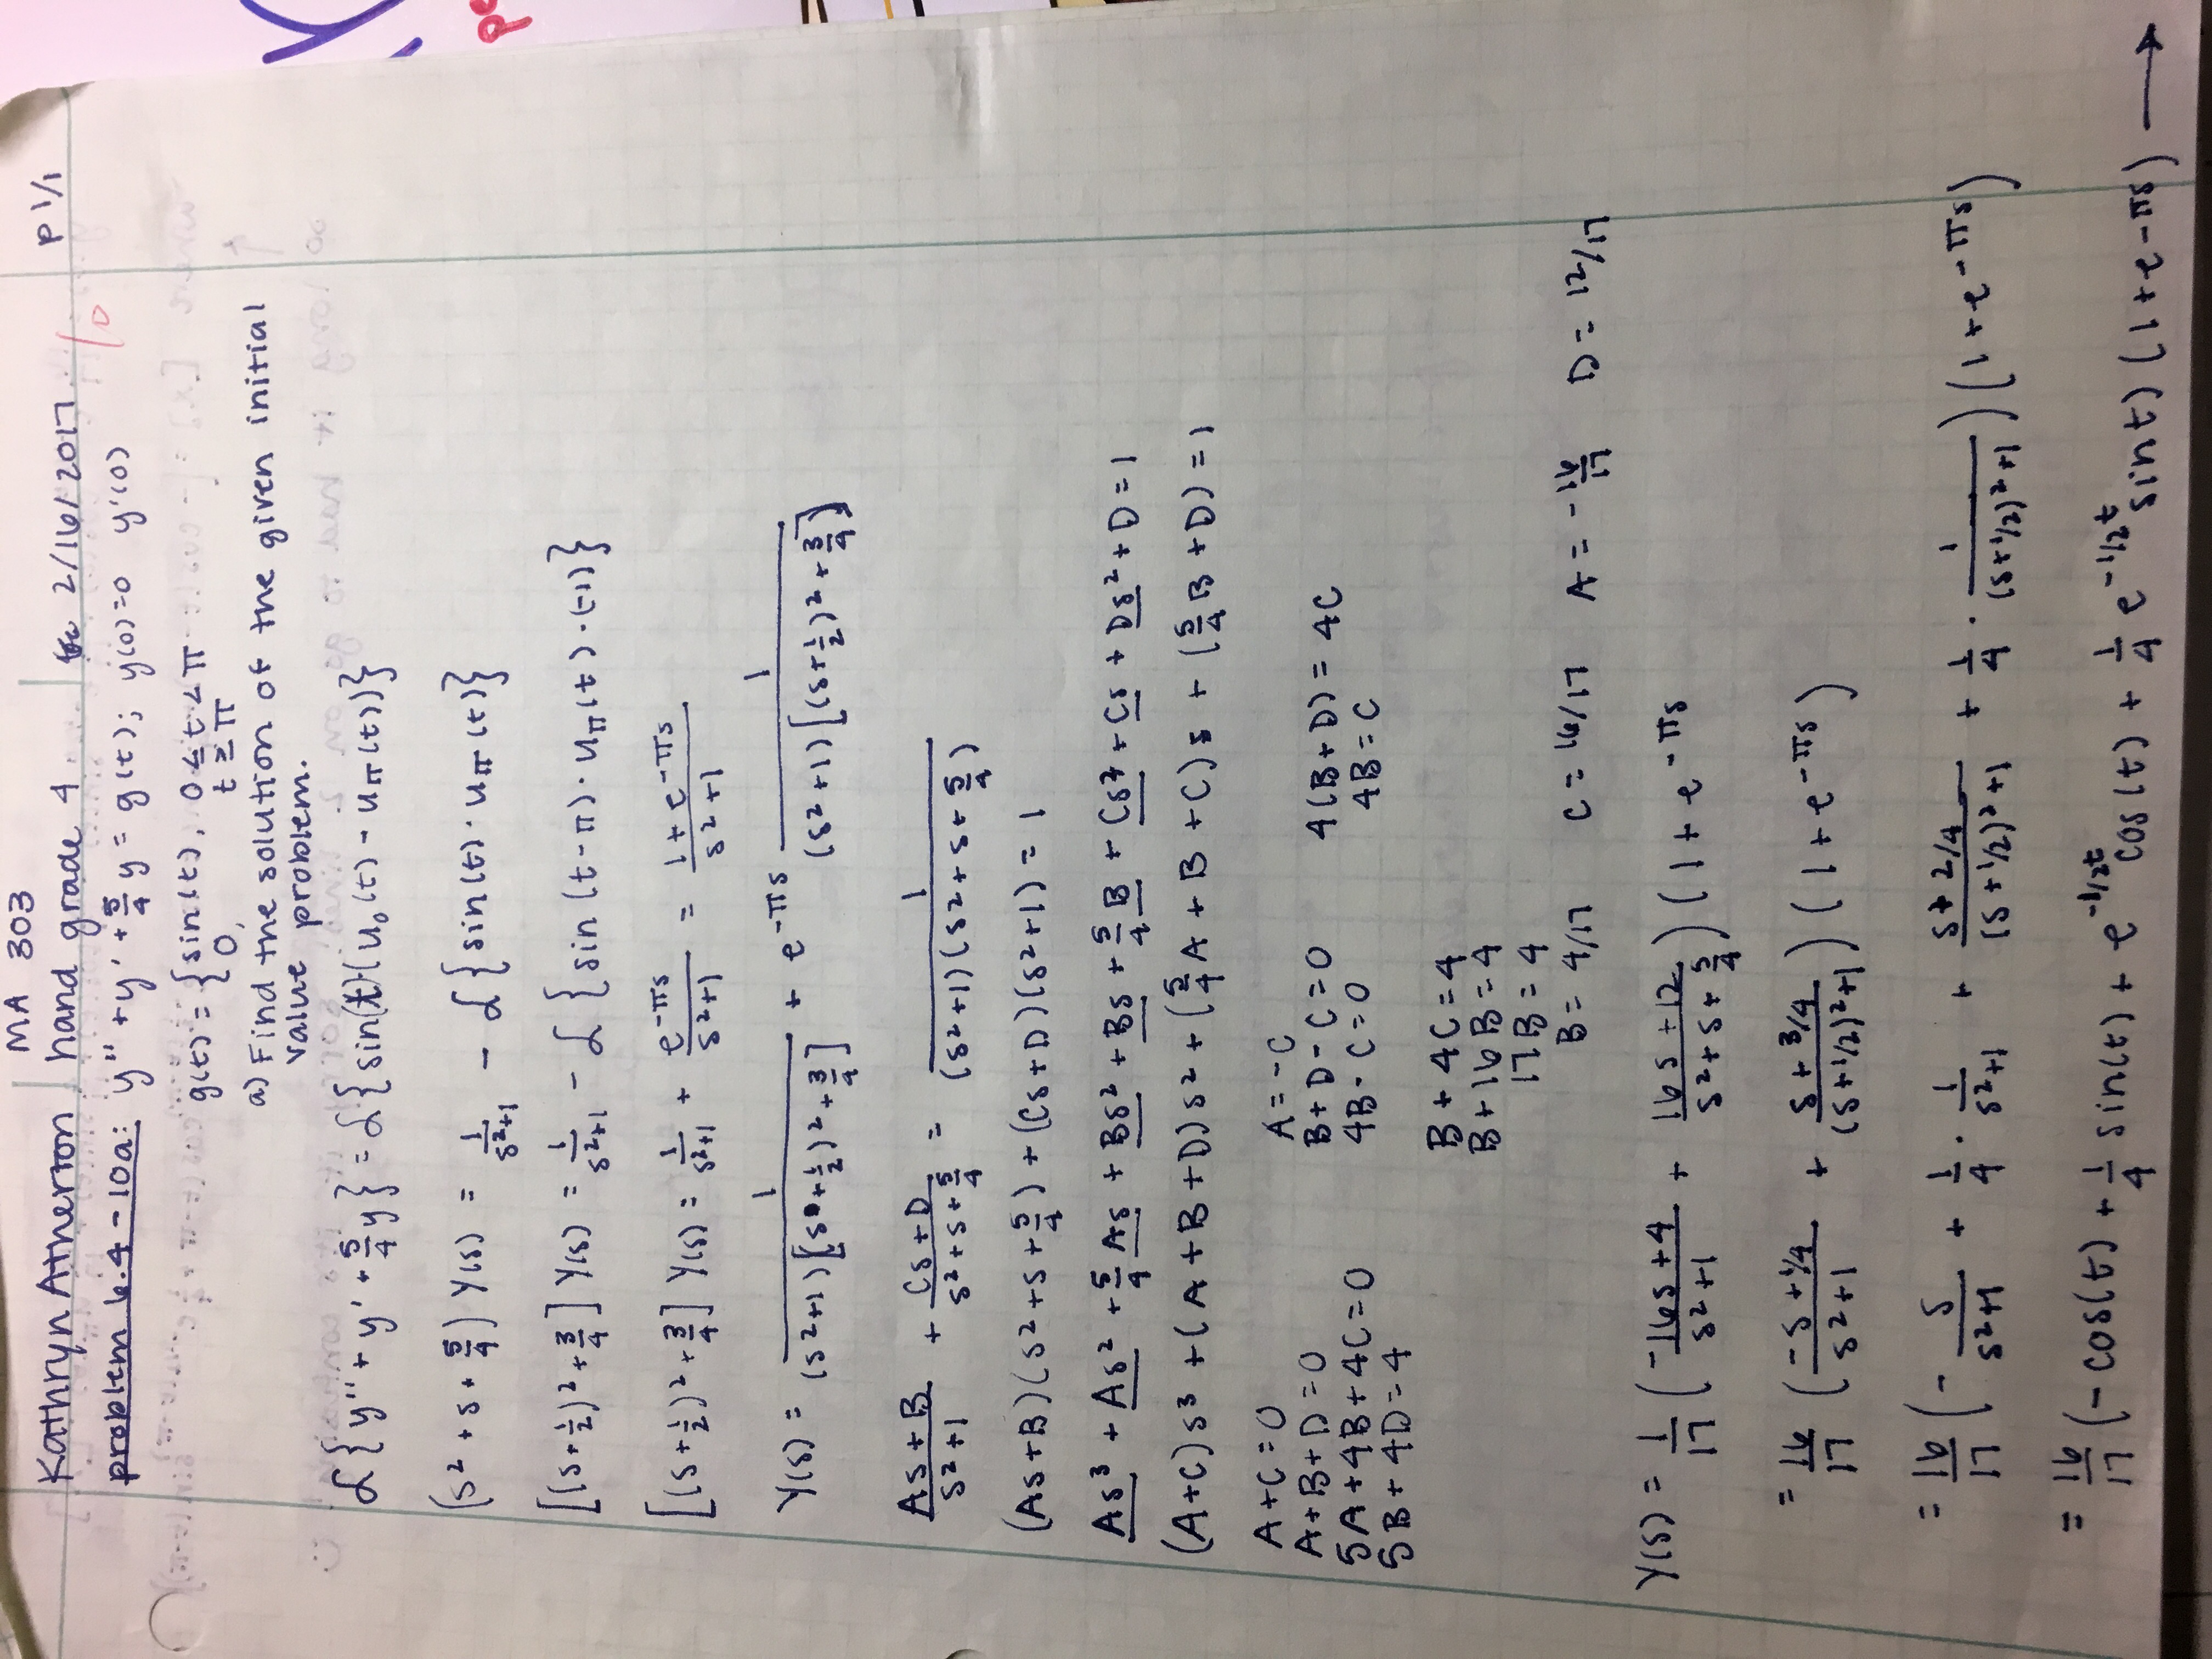 MA 303
Kathryn Atherton hand grade 4 2/16/2017 p 1/1
10
problem 6.4-10a: y'' + y' + 5/4 y = g(t); y(0)=0 y'(0)
g(t) = { sin(t), 0 ≤ t < π
0, t ≥ π
a) Find the solution of the given initial
value problem.
ℒ{y'' + y' + 5/4 y} = ℒ{sin(t)·(u₀(t) - uπ(t))}
(s² + s + 5/4) Y(s) = 1/(s²+1) - ℒ{sin(t)·uπ(t)}
[(s+1/2)² + 3/4] Y(s) = 1/(s²+1) - ℒ{sin(t-π)·uπ(t)·(-1)}
[(s+1/2)² + 3/4] Y(s) = 1/(s²+1) + e^(-πs)/(s²+1) = (1+e^(-πs))/(s²+1)
Y(s) = 1/((s²+1)[s+1/2)² + 3/4]) + e^(-πs) 1/((s²+1)[(s+1/2)² + 3/4])
(As+B)/(s²+1) + (Cs+D)/(s²+s+5/4) = 1/((s²+1)(s²+s+5/4))
(As+B)(s²+s+5/4) + (Cs+D)(s²+1) = 1
As³ + As² + 5/4 As + Bs² + Bs + 5/4 B + Cs³ + Cs + Ds² + D = 1
(A+C)s³ + (A+B+D)s² + (5/4 A + B + C)s + (5/4 B + D) = 1
A+C=0 A=-C
A+B+D=0 B+D-C=0 4(B+D)=4C
5A+4B+4C=0 4B-C=0 4B=C
5B+4D=4
B+4C=4
B+16B=4
17B=4
B=4/17 C=16/17 A=-16/17 D=12/17
Y(s) = 1/17 ((-16s+4)/(s²+1) + (16s+12)/(s²+s+5/4)) (1+e^(-πs)
= 16/17 ((-s+1/4)/(s²+1) + (s+3/4)/((s+1/2)²+1)) (1+e^(-πs))
= 16/17 (- s/(s²+1) + 1/4 · 1/(s²+1) + (s+2/4)/((s+1/2)²+1) + 1/4 · 1/((s+1/2)²+1)) (1+e^(-πs))
= 16/17 (-cos(t) + 1/4 sin(t) + e^(-1/2t) cos(t) + 1/4 e^(-1/2t) sint) (1+e^(-πs)) →